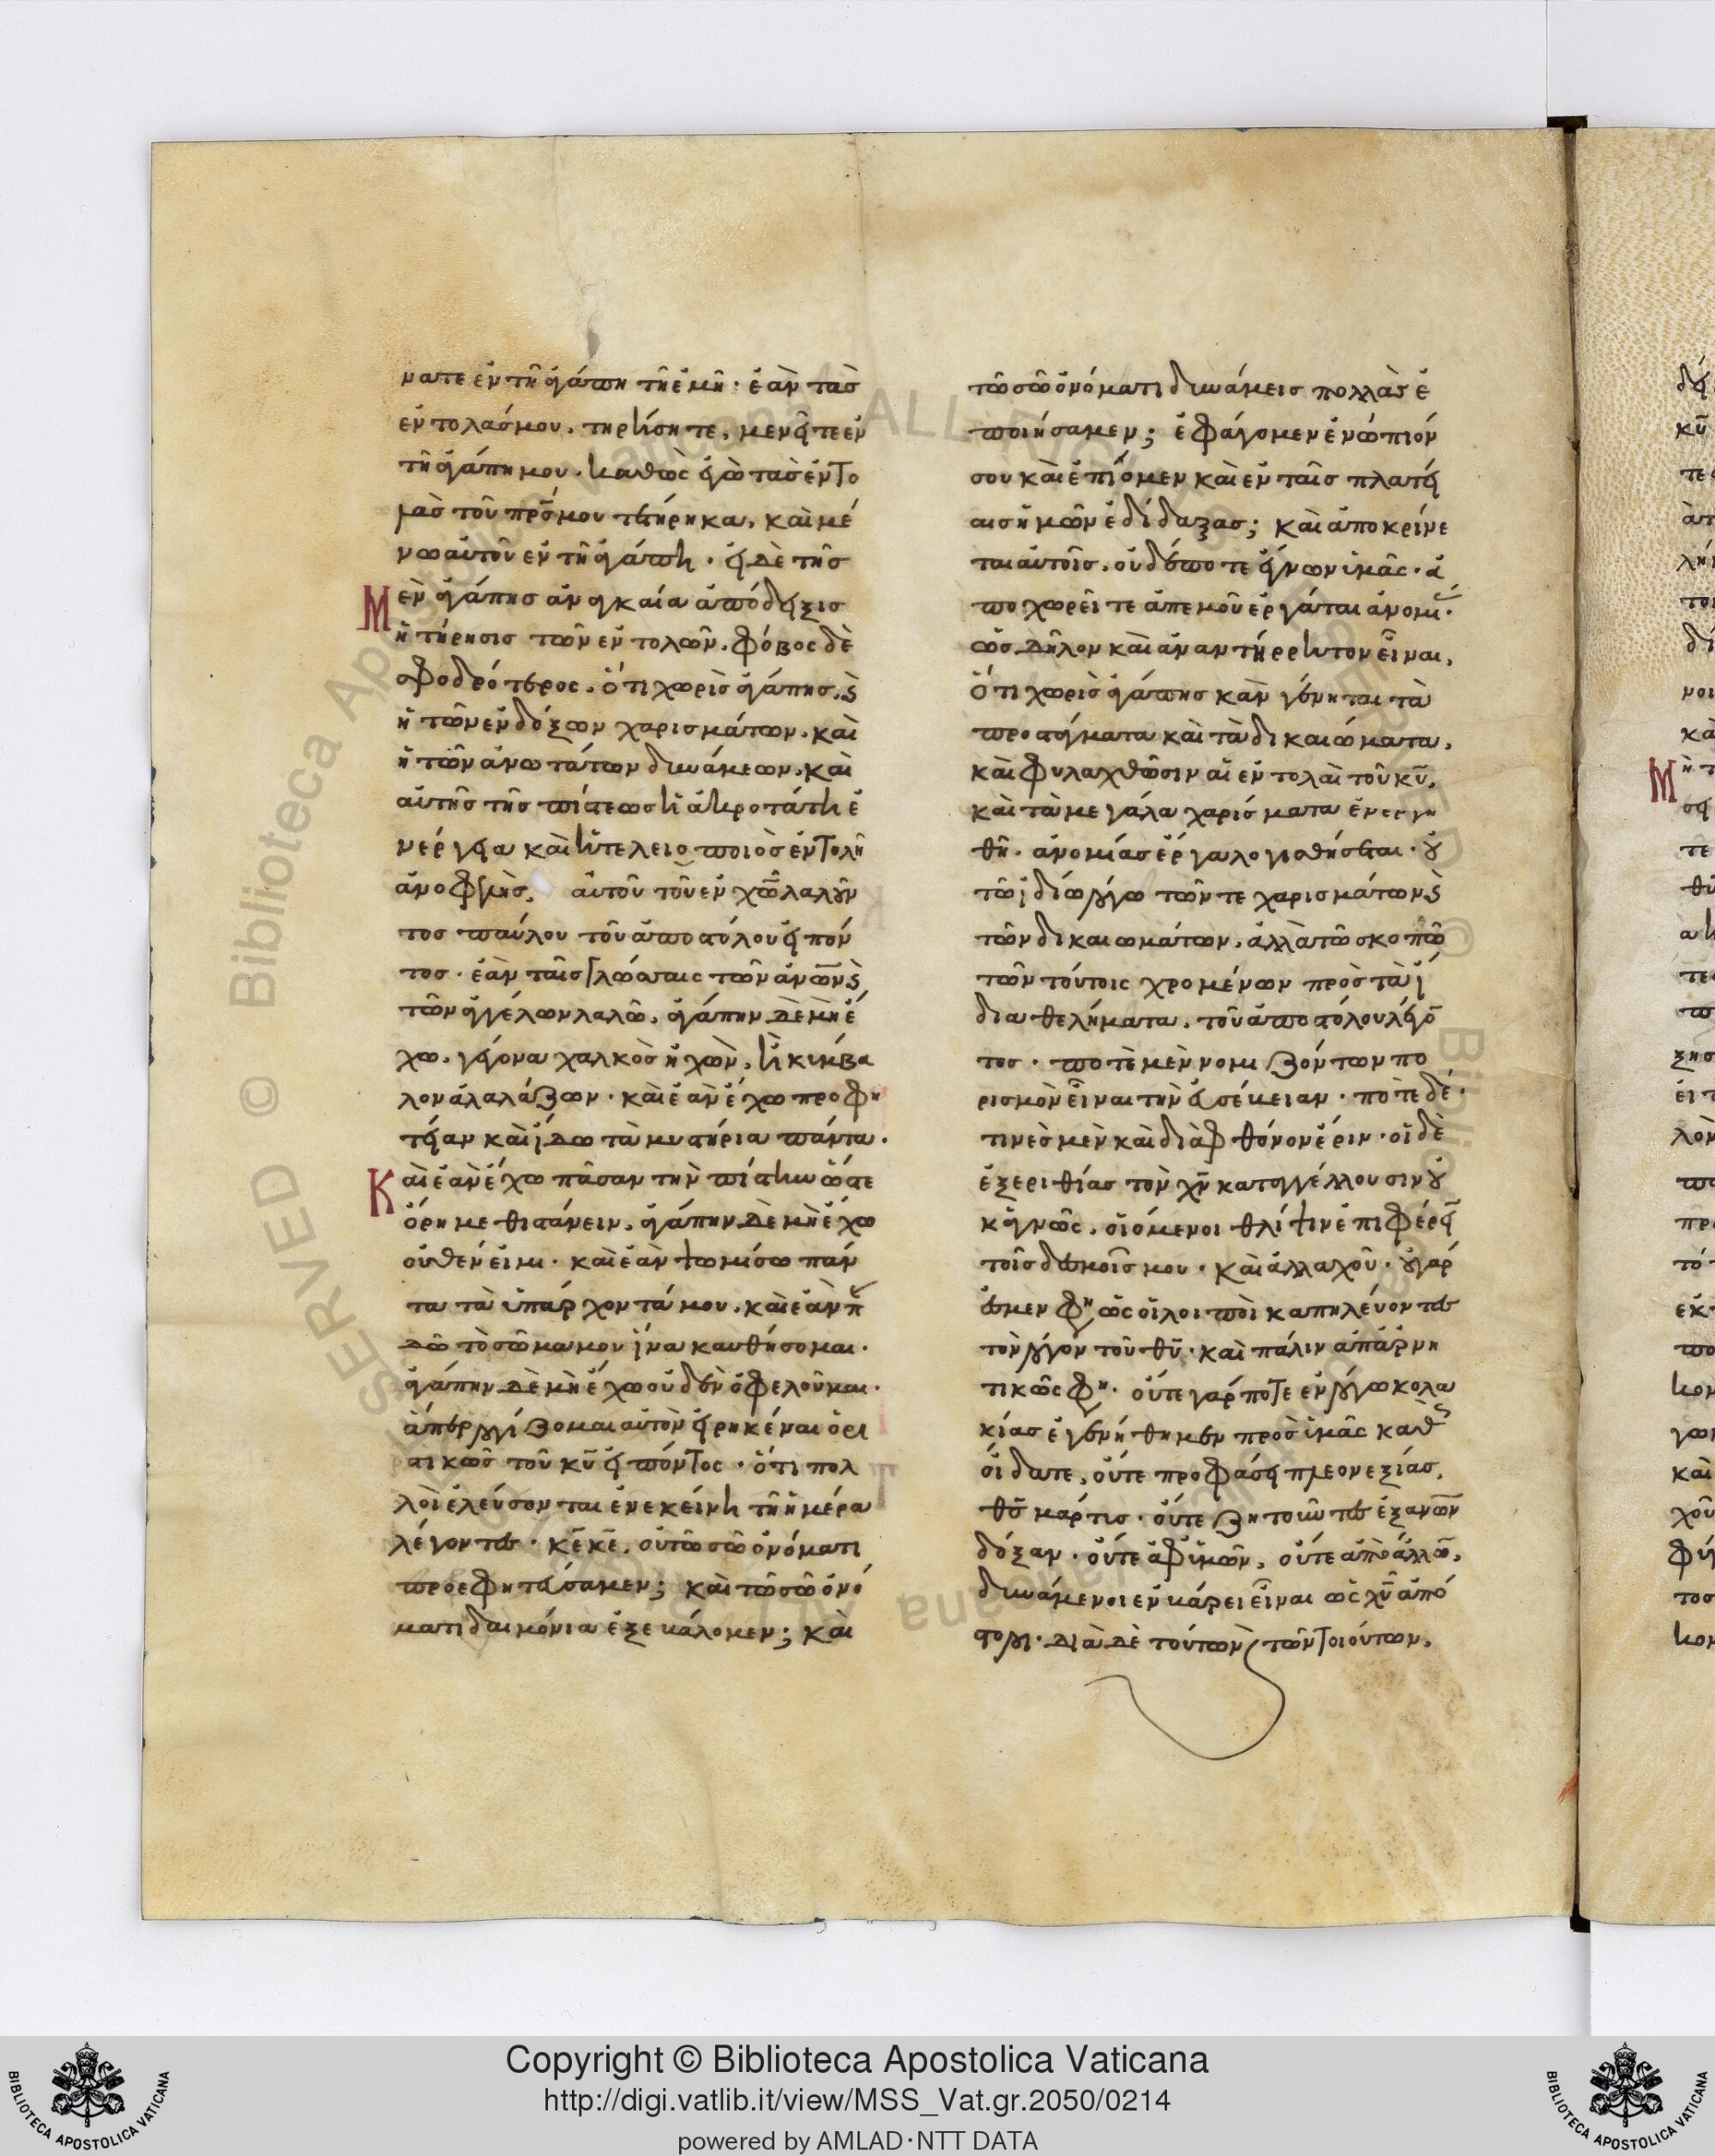 νατε ἐν τῆ ἀγάπη τῆ ἐμῆ· ἐὰν τὰς
ἐντολάς μου, τηρήσητε, μενεῖτε ἐν
τῆ ἀγάπη μου. καθὼς ἐγὼ τὰς ἐντο
λὰς τοῦ πρ̅ς μου τετήρηκα, καὶ μέ
νω αὐτοῦ ἐν τῆ ἀγάπη· εἰ δὲ τῆς
Μὲν ἀγάπης ἀναγκαία ἀπόδειξις
ἡ τήρησις τῶν ἐντολῶν. φόβος δὲ
σφοδρότερος, ὅτι χωρὶς ἀγάπης, καὶ
ἡ τῶν ἐνδόξων χαρισμάτων. καὶ
ἡ τῶν ἀνωτάτων δυνάμεων. καὶ
αὐτῆς τῆς πίστεως ἡ ἀκροτάτη ἐ
νέργεια καὶ ἡ τελειοποιὸς ἐντολὴ
ἀνοφελὴς, αὐτοῦ τοῦ ἐν χω̅ λαλοῦν
τος παύλου τοῦ ἀποστόλου εἰπόν
τος· ἐὰν ταῖς γλώσσαις τῶν ἀνω̅ν καὶ
τῶν ἀγγέλων λαλῶ, ἀγάπην δὲ μὴ ἔ
χω, γέγονα χαλκὸς ἠχῶν, ἢ κιμβα
λον ἀλαλάζων· καὶ ἐὰν ἔχω προφη
τείαν καὶ ἴδω τὰ μυστήρια πάντα·
Καὶ ἐὰν ἔχω πᾶσαν τὴν πίστιν ὥστε
ὄρη μεθιστάνειν, ἀγάπην δὲ μὴ ἔχω
οὐθέν εἰμι· καὶ ἐὰν ψωμίσω πάν
τα τὰ ὑπάρχοντά μου, καὶ ἐὰν π
δῶ τὸ σῶμα μου ἵνα καυθήσομαι·
ἀγάπην δὲ μὴ ἔχω οὐδὲν ὀφελοῦμαι·
ἅπερ λογίζομαι αὐτὸν εἰρηκέναι ὁρι
στικῶς τοῦ κυ̅ εἰπόντος· ὅτι πολ
λοὶ ἐλεύσονται ἐν ἐκείνη τῆ ἡμέρα
λέγοντες· κε̅ κε̅, οὐ τῶ σῶ ὀνόματι
προεφητεύσαμεν; καὶ τῶ σῶ ὀνό
ματι δαιμόνια ἐξεβάλομεν; καὶ
τῶ σῶ ὀνόματι δυνάμεις πολλὰς ἐ
ποιήσαμεν; ἐφάγομεν ἐνώπιόν
σου καὶ ἐπίομεν καὶ ἐν ταῖς πλατεί
αις ἡμῶν ἐδίδαξας; καὶ ἀποκρίνε
ται αὐτοῖς, οὐδέποτε ἔγνων ὑμᾶς· ἀ
ποχωρεῖτε ἀπ' ἐμοῦ ἐργάται ἀνομί·
ὡς δῆλον καὶ ἀναντήρρητον εἶναι,
ὅτι χωρὶς ἀγάπης κἂν γένηται τὰ
προστάγματα καὶ τὰ δικαιώματα,
καὶ φυλαχθῶσιν αἱ ἐντολαὶ τοῦ κυ̅,
καὶ τὰ μεγάλα χαρίσματα ἐνεργη
θῆ· ἀνομίας ἔργα λογισθήσεται· οὐ
τῶ ἰδίω λόγω τῶν τε χαρισμάτων καὶ
τῶν δικαιωμάτων, ἀλλὰ τῶ σκοπῶ
τῶν τούτοις χρομένων πρὸς τὰ ἴ
δια θελήματα, τοῦ ἀποστόλου λέγο
τος· ποτὲ μὲν νομιζόντων πο
ρισμὸν εἶναι τὴν εὐσέβειαν· ποτὲ δέ·
τινὲς μὲν καὶ διὰ φθόνον ἔριν· οἱ δὲ
ἐξ ἐριθίας τὸν χν̅ καταγγέλλουσιν οὐ
κ ἁγνῶς, οἰόμενοι θλίψιν ἐπιφέρειν
τοῖς δεσμοῖς μου· καὶ ἀλλαχοῦ· οὐ γάρ
ἐσμεν φη ὡς οἱ λοιποὶ καπηλεύοντες
τὸν λόγον τοῦ θυ̅· καὶ πάλιν ἀπαρνη
τικῶς φη· οὔτε γάρ ποτε ἐν λόγω κολα
κίας ἐγενήθημεν πρὸς ὑμᾶς καθ
οἴδατε, οὔτε προφάσει πλεονεξίας,
θς̅ μάρτις· οὔτε ζητοῦντες ἐξ ανω̅ν
δόξαν· οὔτε ἀφ' ὑμῶν, οὔτε ἀπὸ ἄλλω,
δυνάμενοι ἐν βάρει εἶναι ὡς χυ̅ ἀπό
στολοι· διὰ δὲ τούτων καὶ τῶν τοιούτων,
Copyright © Biblioteca Apostolica Vaticana
http://digi.vatlib.it/view/MSS_Vat.gr.2050/0214
powered by AMLAD·NTT DATA